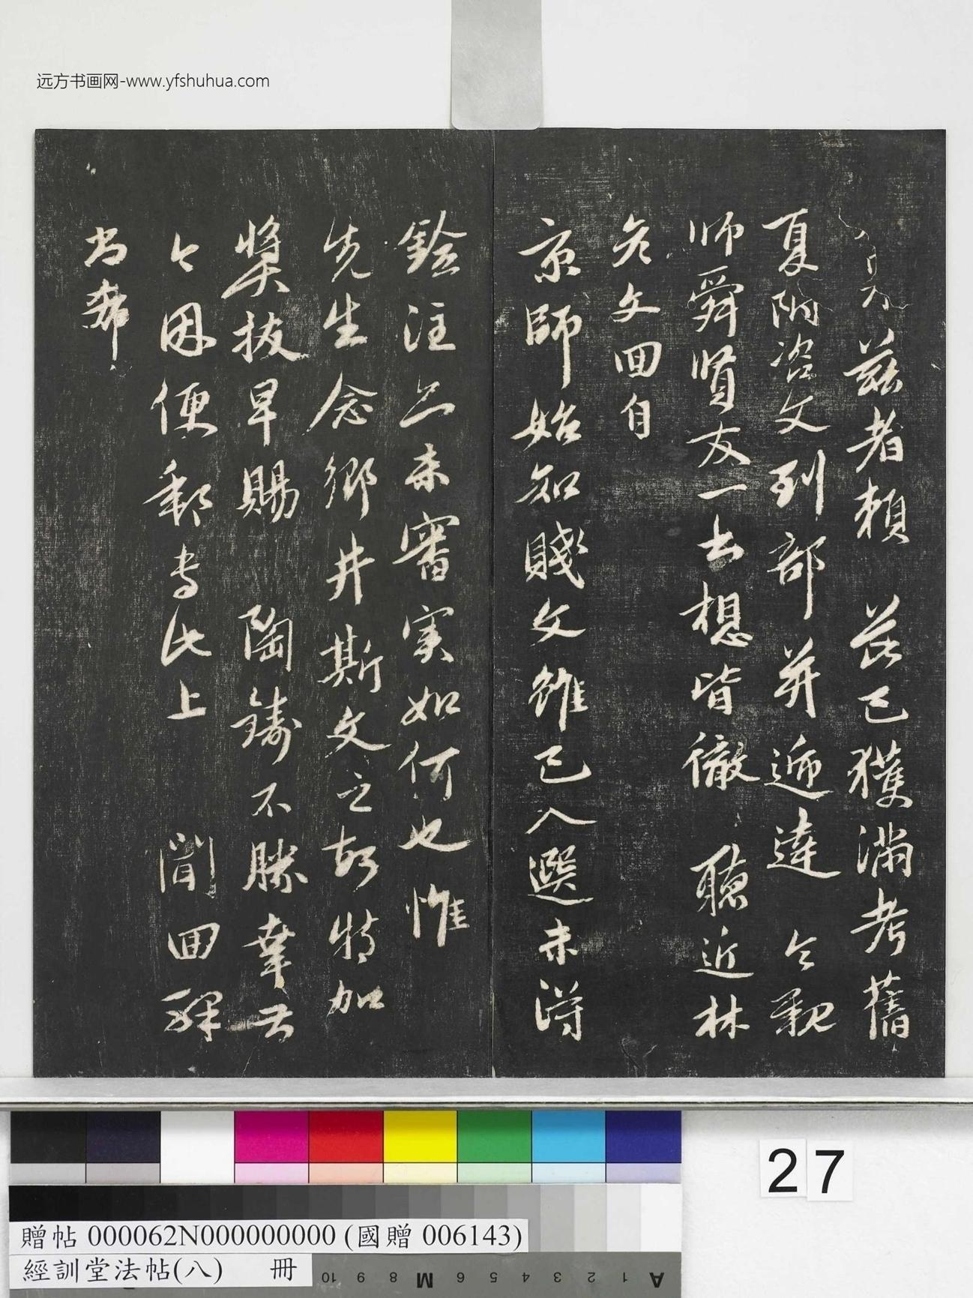 远方书画网-www.yfshuhua.com
茲者賴 茂已獲滿考舊
夏附咨文到部并遞達 令親
师舜賢友一書想皆徹 聽近林
彥文回自
京師始知賤文雖已入選未得
銓注亦未審実如何也惟
先生念鄉井斯文之故特加
奬拔早賜 陶鑄不勝幸甚
今因便郵専此上 聞回
尚希
27
贈帖 000062N000000000 (國贈 006143)
經訓堂法帖(八) 冊
10 9 8 M 6 5 4 3 2 1 A